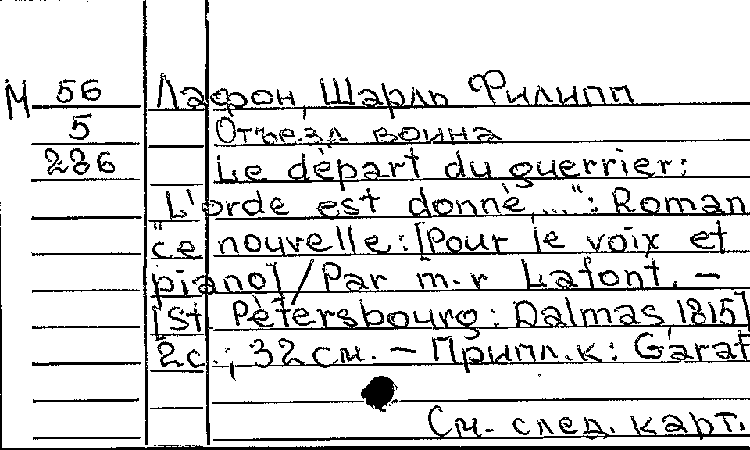 М 56 Лафон, Шарль Филипп
5 Отъезд воина
286 Le départ du guerrier:
"L'orde est donné,...": Roman
ce nouvelle: [Pour le voix et
piano] / Par m-r Lafont. –
[St. Pétersbourg: Dalmas, 1815]
2с.; 32см. – Припл. к: Garat
См. след. карт.